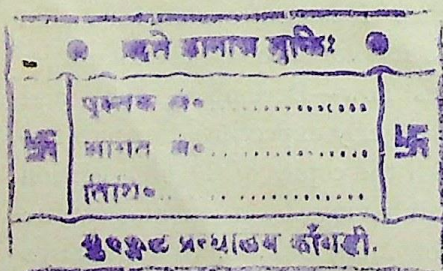 ऋते ज्ञानान्न मुक्तिः
पुस्तक सं० ...............
आगत सं० ...............
तिथि० ...............
गुरुकुल ग्रन्थालय काँगड़ी.